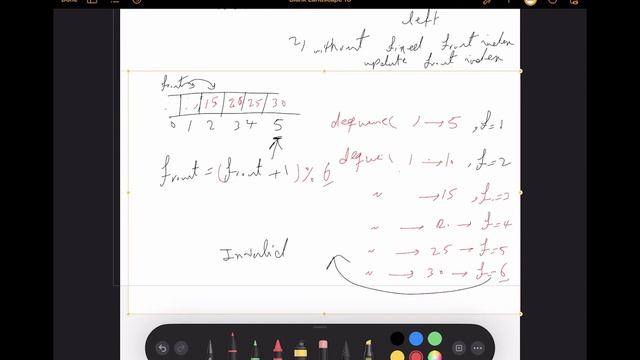 left
2) without fixed front index
update front index
front
15 20 25 30
0 1 2 3 4 5
dequeue( ) → 5 , f=1
front = (front + 1) % 6
→ 10 , f=2
" → 15 , f=3
" → 20 → f=4
Invalid
" → 25 → f=5
" → 30 → f=6